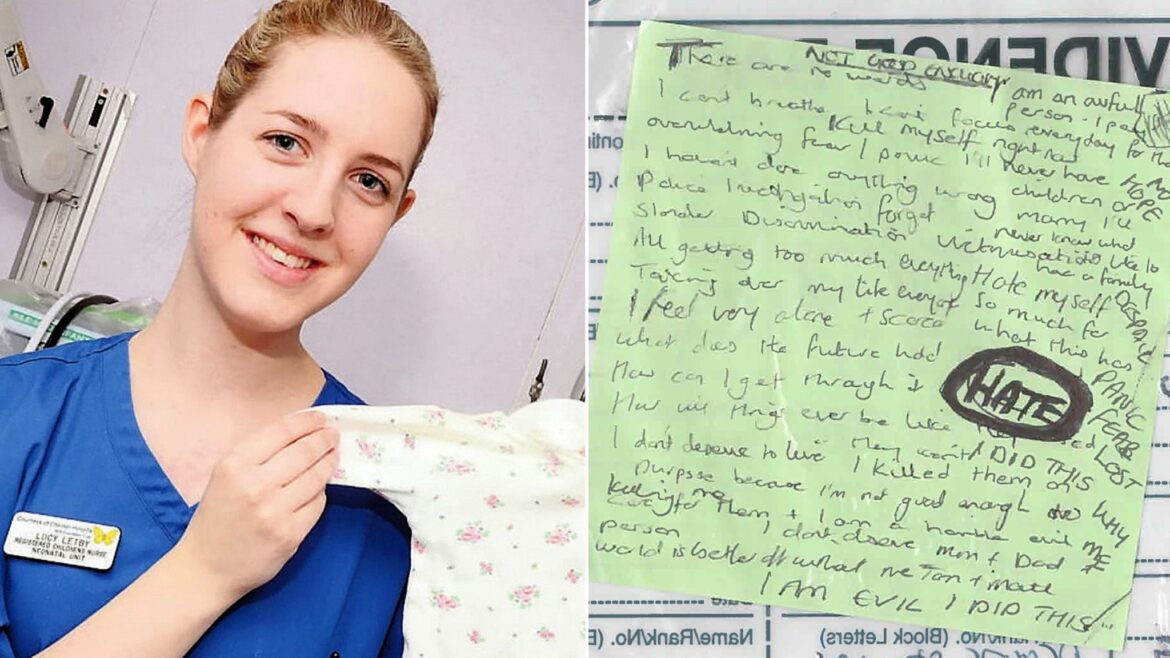 Countess of Chester Hospital
LUCY LETBY
REGISTERED CHILDRENS NURSE
NEONATAL UNIT
VIDENCE
NOT GOOD ENOUGH
There are no words
I am an awful
person - I pay
I cant breathe I cant focus everyday for that
Kill myself right now
overwhelming fear I panic I'll never have
NO
HOPE
I havent done anything wrong children or
marry I'll
Police investigation forget never know what
Slander Discrimination Victimisation like to
have a family
All getting too much everything Hate myself
DESPAIR
Taking over my life everyone so much for
I feel very alone + scared what this has
What does the future hold
PANIC
HATE
How can I get through it
FEAR
How will things ever be like
LOST
they won't I DID THIS
I don't deserve to live I Killed them on
purpose because I'm not good enough
WHY
ME
to care for them + I am a horrible evil
person I don't deserve mum + Dad
world is better off without me Tom + matt
I AM EVIL I DID THIS
Name/Rank/No.
Rank/No. (Block Letters)